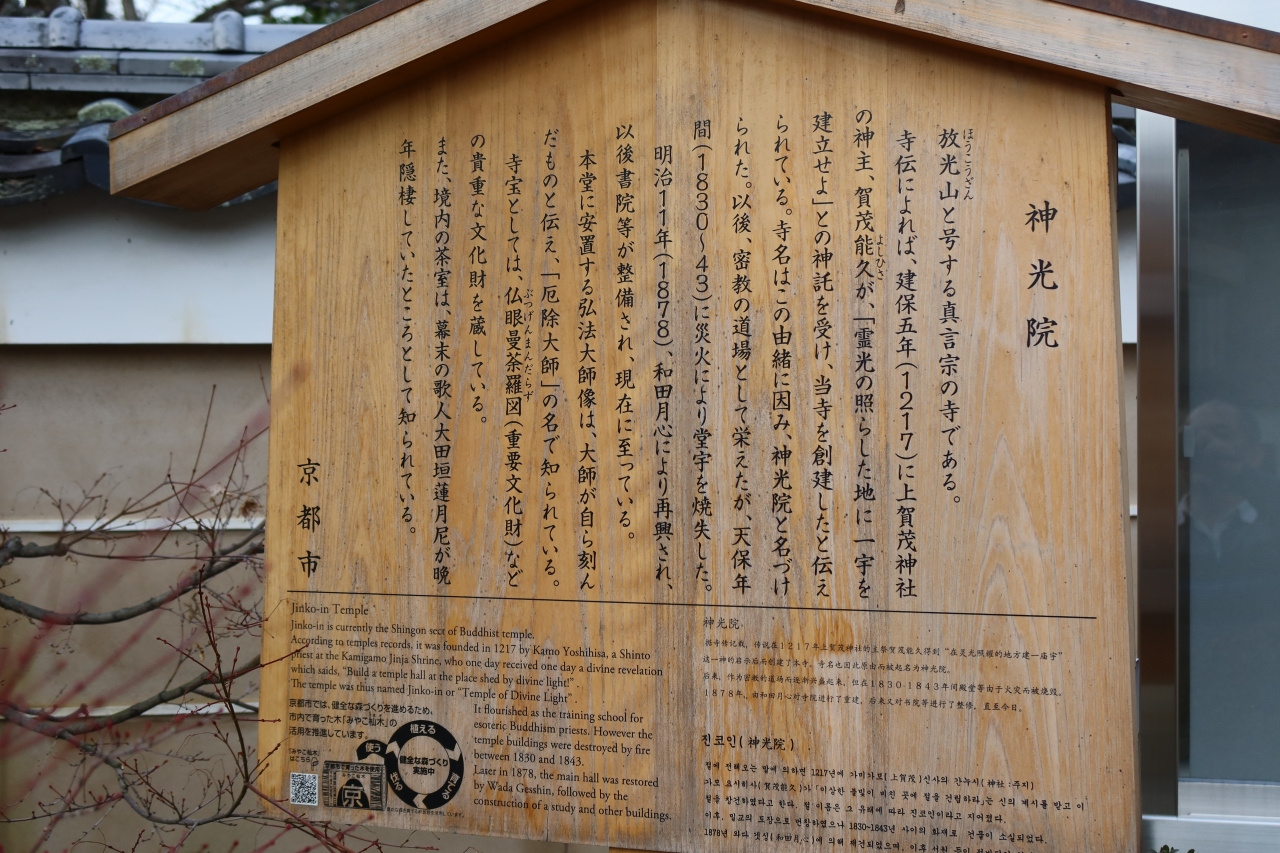 神光院
放光山と号する真言宗の寺である。
ほうこうざん
寺伝によれば、建保五年(1217)に上賀茂神社
の神主、賀茂能久が、「霊光の照らした地に一宇を
よしひさ
建立せよ」との神託を受け、当寺を創建したと伝え
られている。寺名はこの由緒に因み、神光院と名づけ
られた。以後、密教の道場として栄えたが、天保年
間(1830～43)に災火により堂宇を焼失した。
明治11年(1878)、和田月心により再興され、
以後書院等が整備され、現在に至っている。
本堂に安置する弘法大師像は、大師が自ら刻ん
だものと伝え、「厄除大師」の名で知られている。
寺宝としては、仏眼曼荼羅図(重要文化財)など
ぶつげんまんだらず
の貴重な文化財を蔵している。
また、境内の茶室は、幕末の歌人大田垣蓮月尼が晩
年隠棲していたところとして知られている。
京都市
Jinko-in Temple
Jinko-in is currently the Shingon sect of Buddhist temple.
According to temples records, it was founded in 1217 by Kamo Yoshihisa, a Shinto
priest at the Kamigamo Jinja Shrine, who one day received one day a divine revelation
which saids, "Build a temple hall at the place shed by divine light!"
The temple was thus named Jinko-in or "Temple of Divine Light"
It flourished as the training school for
esoteric Buddhism priests. However the
temple buildings were destroyed by fire
between 1830 and 1843.
Laser in 1878, the main hall was restored
by Wada Gesshin, followed by the
construction of a study and other buildings.
京都市では、健全な森づくりを進めるため、
市内で育った木「みやこ杣木」の
活用を推進しています。
「みやこ杣木」
はこちら
京
植える
育てる
使う
健全な森づくり
実施中
神光院
据寺传记载，传说在1217年上贺茂神社的主祭贺茂能久得到“在灵光照耀的地方建一庙宇”
这一神的启示后而创建了本寺。寺名也因此原由而被起名为神光院。
后来，作为密教的道场而逐渐兴盛起来，但在1830-1843年间殿堂等由于火灾而被烧毁。
1878年，由和田月心对寺院进行了重建，后来又对书院等进行了整修，直至今日。
진코인(神光院)
절에 전해오는 말에 의하면 1217년에 가미가모(上賀茂)신사의 간누시(神社:주지)
가모 요시히사(賀茂能久)가「이상한 불빛이 비친 곳에 절을 건립하라」는 신의 계시를 받고 이
절을 창건하였다고 한다. 절 이름은 그 유래에 따라 진코인이라고 지어졌다.
이후, 밀교의 도장으로 번창하였으나 1830-1843년 사이의 화재로 건물이 소실되었다.
1878년 와다 겟싱(和田月心)에 의해 재건되었으며, 이후 서원 등이